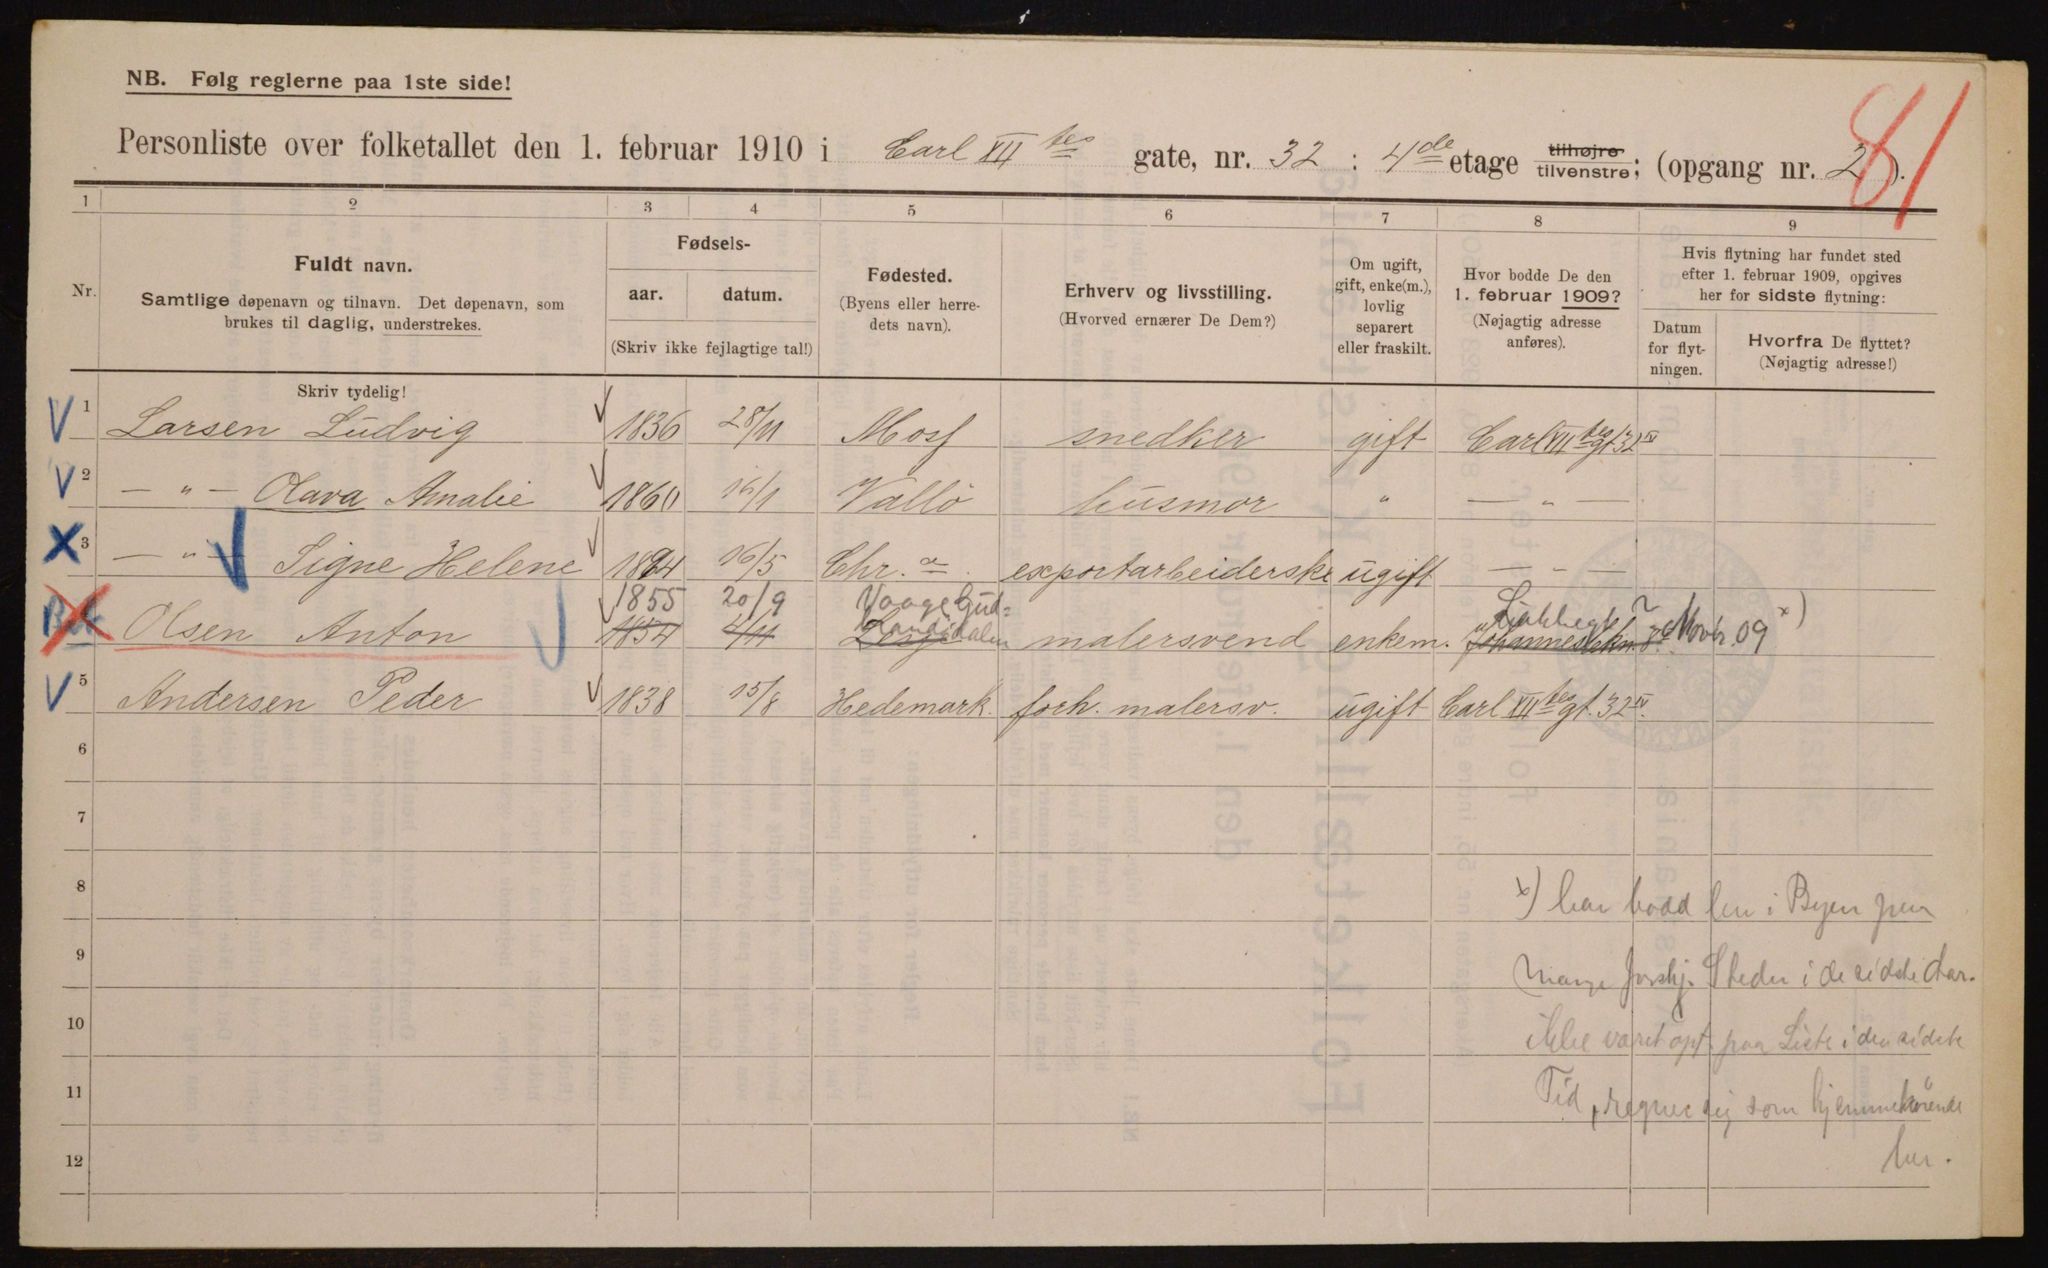 NB. Følg reglerne paa 1ste side!
81
Personliste over folketallet den 1. februar 1910 i Carl XII tes gate, nr. 32 : 4de etage tilhøjre tilvenstre; (opgang nr. 2).
1 2 3 4 5 6 7 8 9
Nr.
Fuldt navn.
Samtlige døpenavn og tilnavn. Det døpenavn, som
brukes til daglig, understrekes.
Skriv tydelig!
Fødsels-
aar. datum.
(Skriv ikke fejlagtige tal!)
Fødested.
(Byens eller herre-
dets navn).
Erhverv og livsstilling.
(Hvorved ernærer De Dem?)
Om ugift,
gift, enke(m.),
lovlig
separert
eller fraskilt.
Hvor bodde De den
1. februar 1909?
(Nøjagtig adresse
anføres).
Hvis flytning har fundet sted
efter 1. februar 1909, opgives
her for sidste flytning:
Datum
for flyt-
ningen.
Hvorfra De flyttet?
(Nøjagtig adresse!)
V 1 Larsen Ludvig 1836 28/11 Moss snedker gift Carl XII tes gt. 32 IV
V 2 — " — Olava Amalie 1860 /1 Vallö husmor " — " —
X 3 — " — Signe Helene 1894 16/5 Chr. a exportarbeiderske ugift — " —
1855 20/9 Vaage Gud=
Olsen Anton 1854 4/11 malersvend enkem. Novbr. 09 x)
V 5 Andersen Peder 1838 15/8 Hedemark. forh. malersv. ugift Carl XII tes gt. 32 IV.
6
7
8
9
10
11
12
x) har bodd her i Byen paa
mange forskj. Steder i de sidste Aar.
ikke været opf. paa Liste i den sidste
Tid, regner sig som hjemmehørende
her.